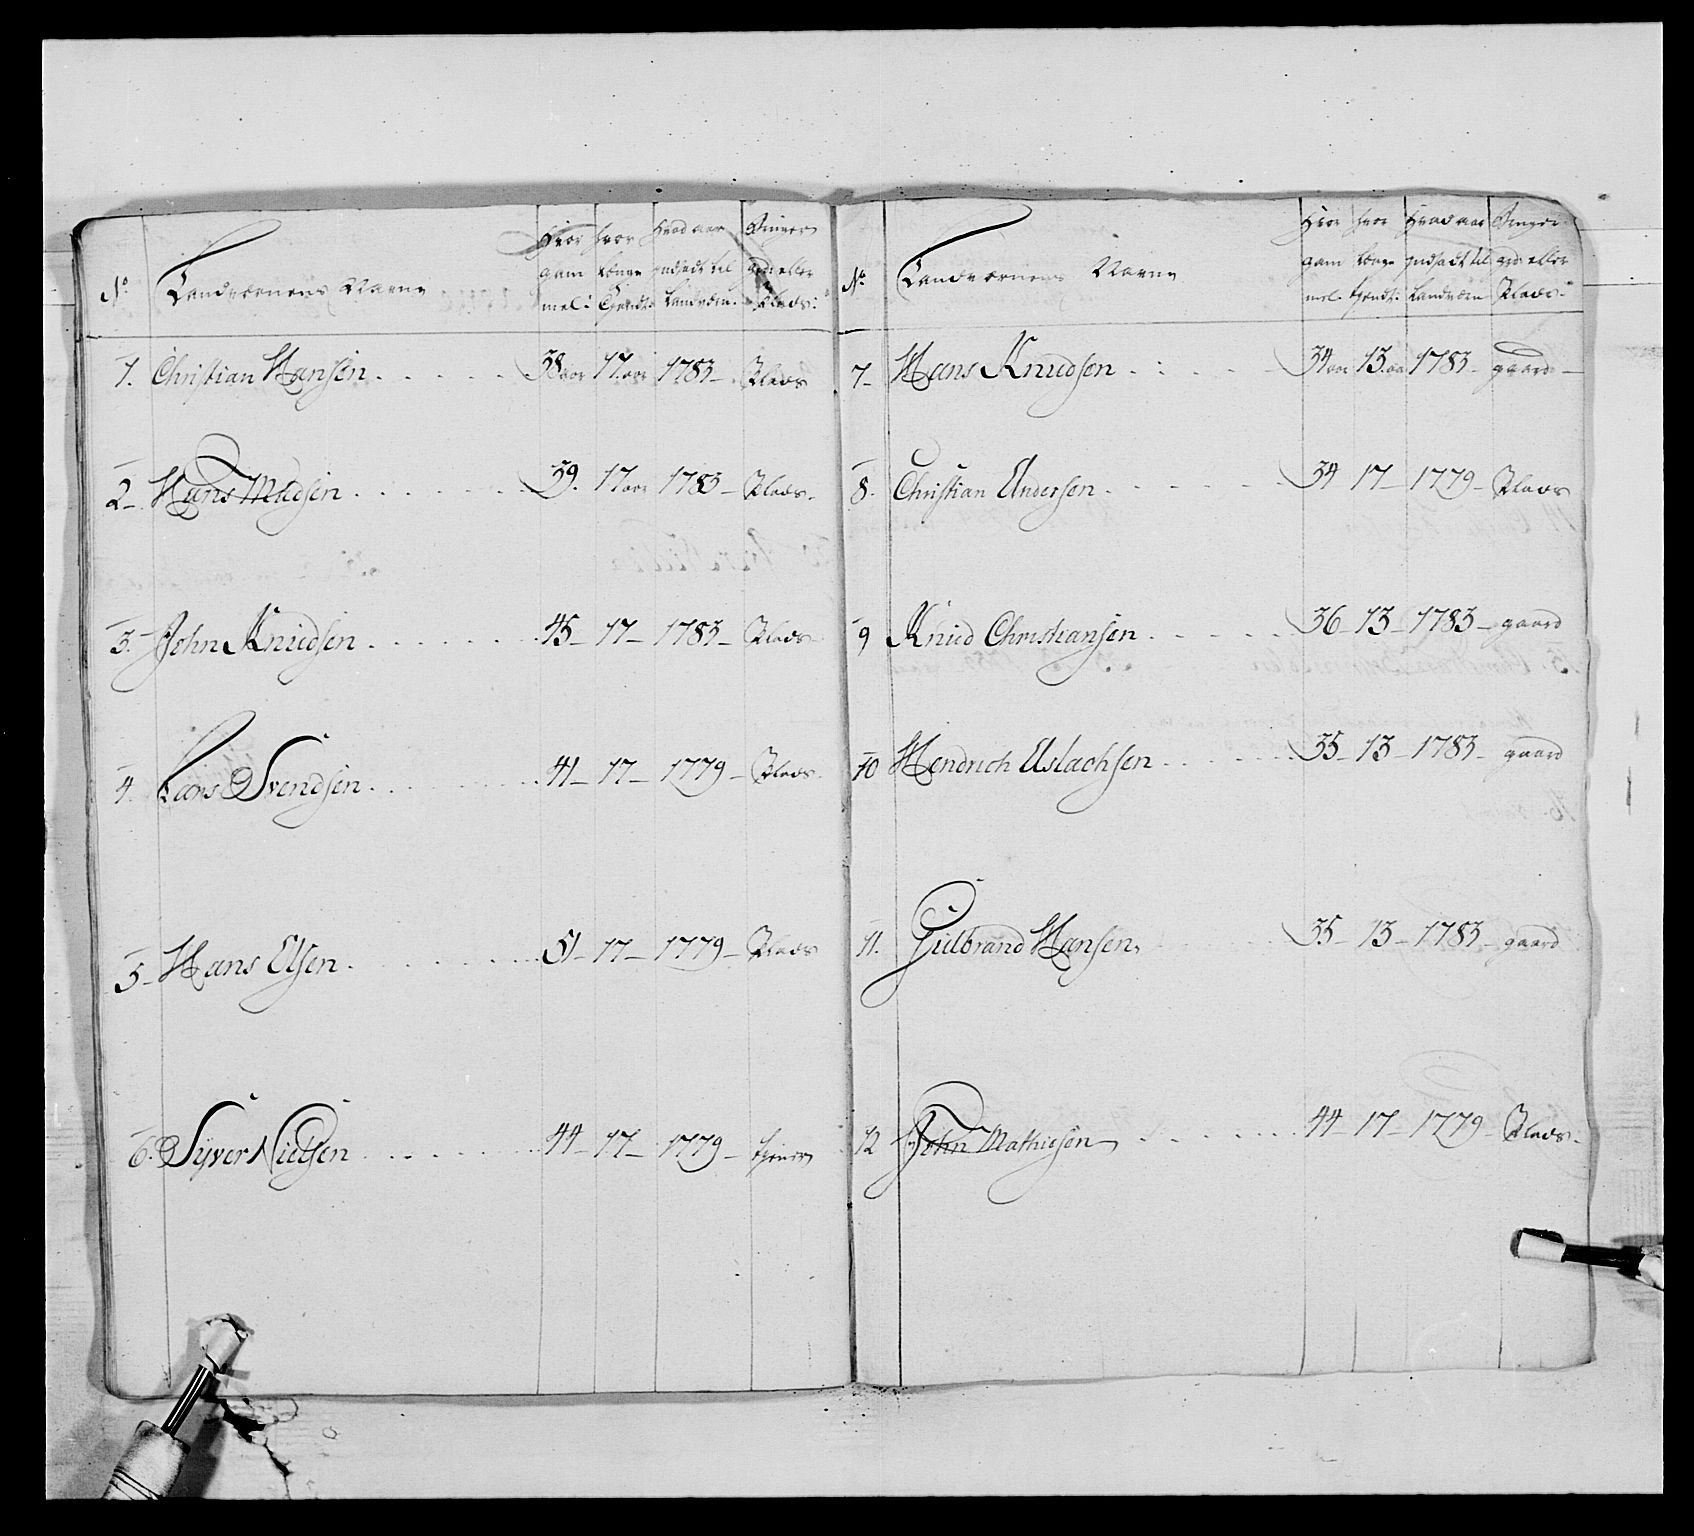 No Landværnens Navne Hvor gam mel: hvor længe Tjendt: Hvad aar indsadt til Landværn. Bruger grd: eller Plads:
1. Christian Hansen 38 aar 17. aar 1783 Plads
2 Hans Madsen 39. 17 aar 1783 Plads
3. John Knudsen 45 17 1783 Plads
4. Lars Svendsen 41 17 1779 Plads
5 Hans Elsen 51 17 1779 Plads
6. Syver Nielsen 44 17 1779 tjener
No Landværnens Navne Hvor gam mel. hvor længe tjendt: Hvad aar indsadt til Landværn Bruger grd: eller Plads:
7 Hans Knudsen 34 aar 13. aar 1783 gaard
8. Christian Andersen 34 17 1779 Plads
9 Knud Christiansen 36 13 1783 gaard
10 Hendrich Aslachsen 35 13 1783 gaard
11. Gulbrand Hansen 35 13 1783 gaard
12 John Mathiesen 44 17 1779 Plads